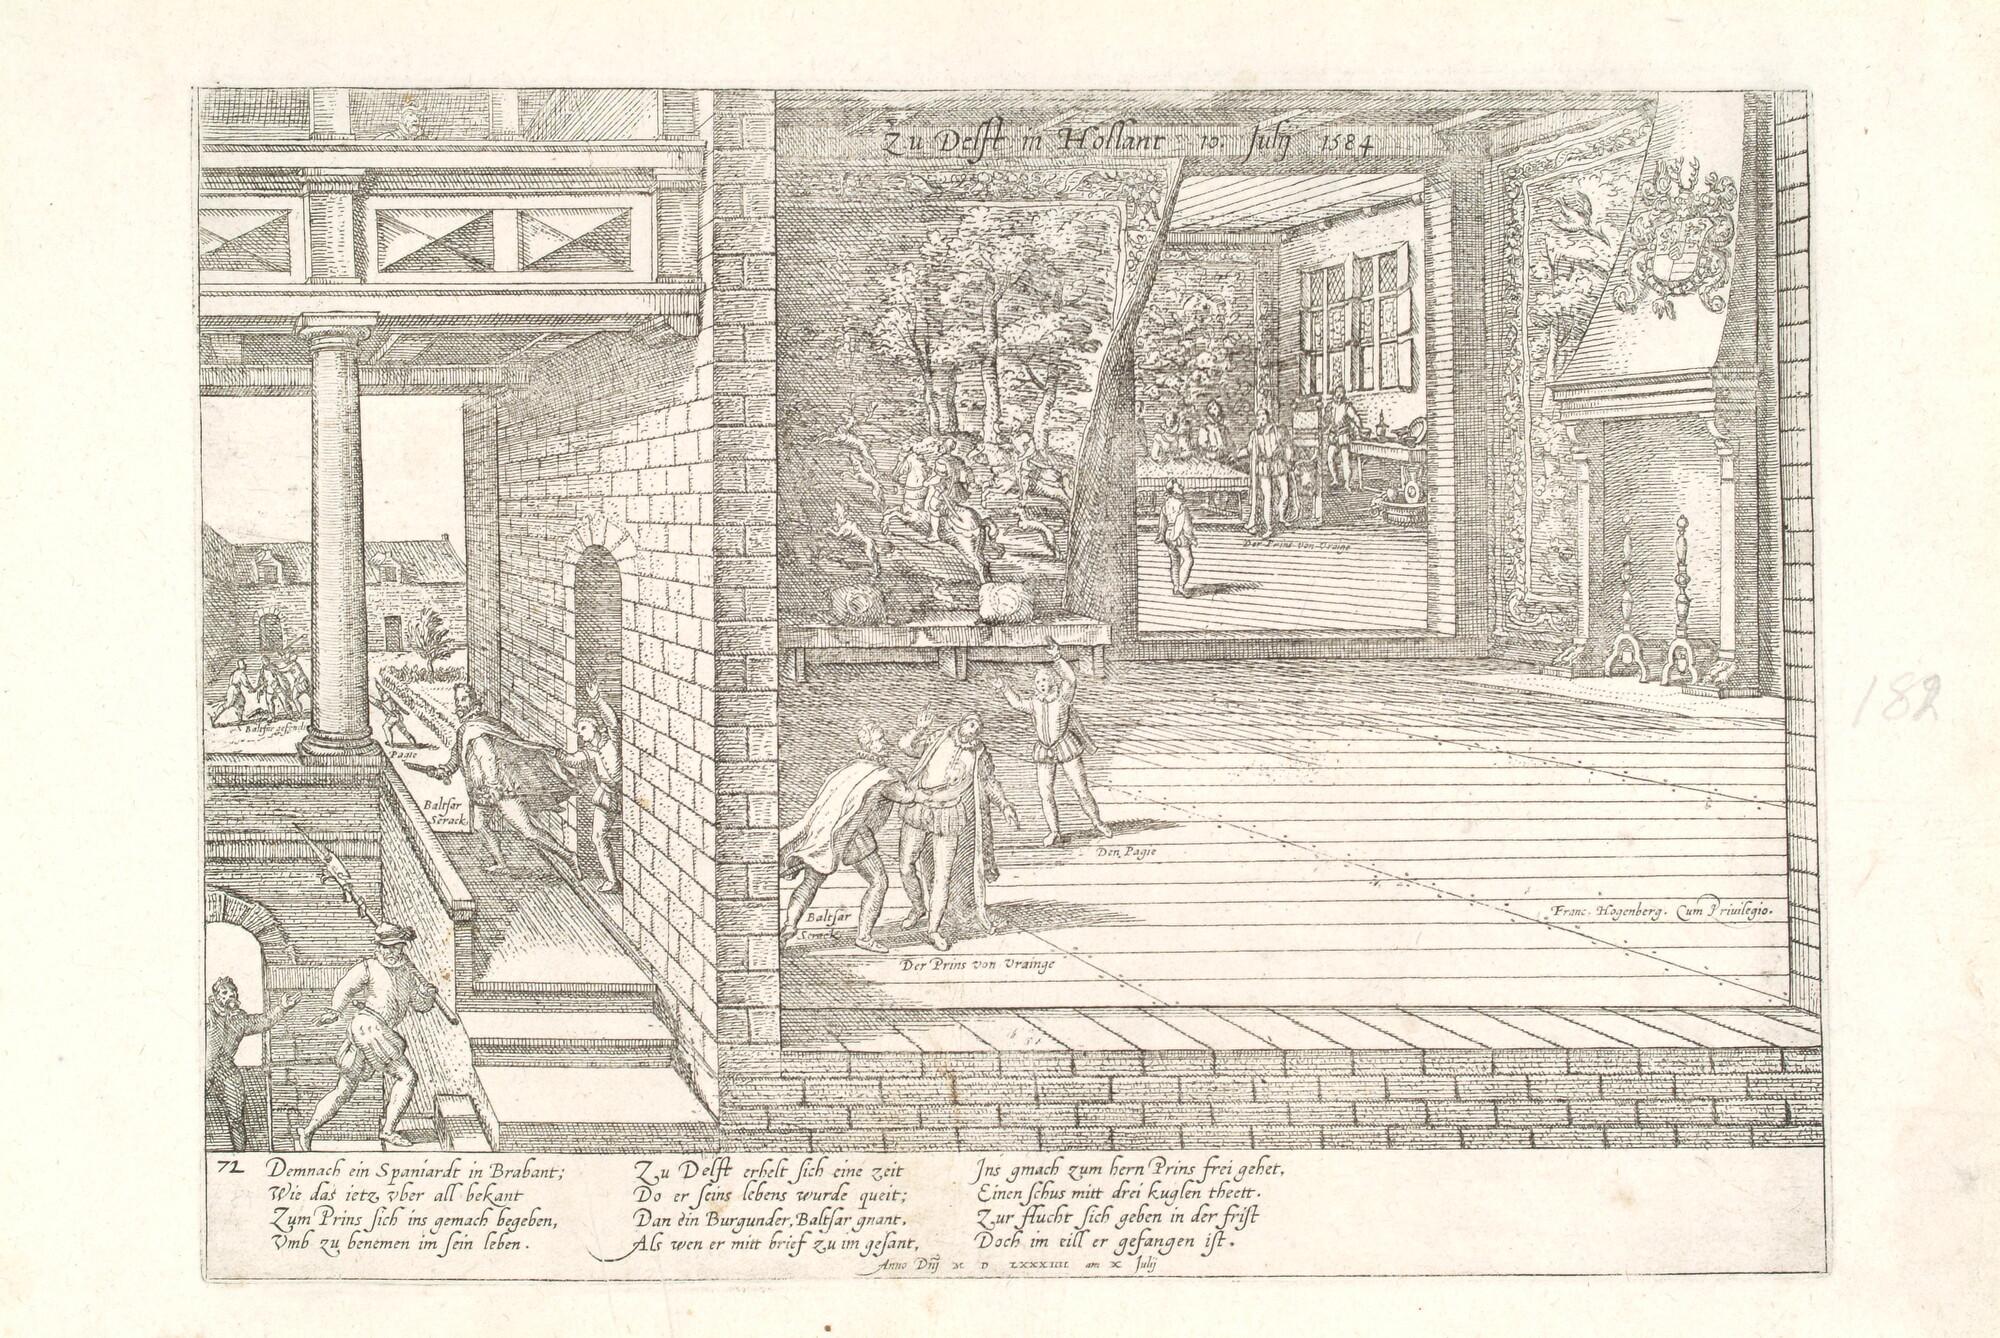 Zu Delft in Hollant 10. Julij 1584
Der Prins von Vrainge
Baltsar gefangen
Pagie
Baltsar
Serack
Den Pagie
Baltsar
Serack
Franc. Hogenberg. Cum Priuilegio.
Der Prins von Vrainge
182
72
Demnach ein Spaniardt in Brabant;
Wie das ietz vber all bekant
Zum Prins sich ins gemach begeben,
Vmb zu benemen im sein leben.
Zu Delft erhelt sich eine zeit
Do er seins lebens wurde queit;
Dan ein Burgunder, Baltsar gnant,
Als wen er mitt brief zu im gesant,
Ins gmach zum hern Prins frei gehet,
Einen schus mitt drei kuglen theett.
Zur flucht sich geben in der frist
Doch im eill er gefangen ist.
Anno Dnĩ M D LXXXIIII am X Julij